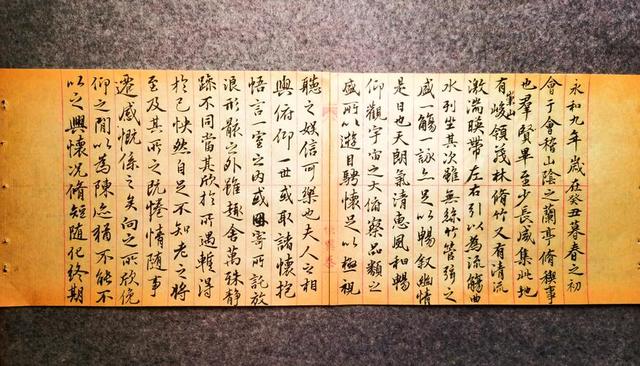 永和九年歲在癸丑暮春之初
會于會稽山陰之蘭亭脩禊事
也羣賢畢至少長咸集此地
有崇山峻領茂林脩竹又有清流
激湍暎帶左右引以為流觴曲
水列坐其次雖無絲竹管弦之
盛一觴一詠亦足以暢叙幽情
是日也天朗氣清惠風和暢
仰觀宇宙之大俯察品類之
盛所以遊目騁懷足以極視
聽之娛信可樂也夫人之相
與俯仰一世或取諸懷抱
悟言一室之內或因寄所託放
浪形骸之外雖趣舍萬殊靜
躁不同當其欣於所遇暫得
於己快然自足不知老之將
至及其所之既惓情隨事
遷感慨係之矣向之所欣俛
仰之閒以為陳迹猶不能不
以之興懷況脩短隨化終期